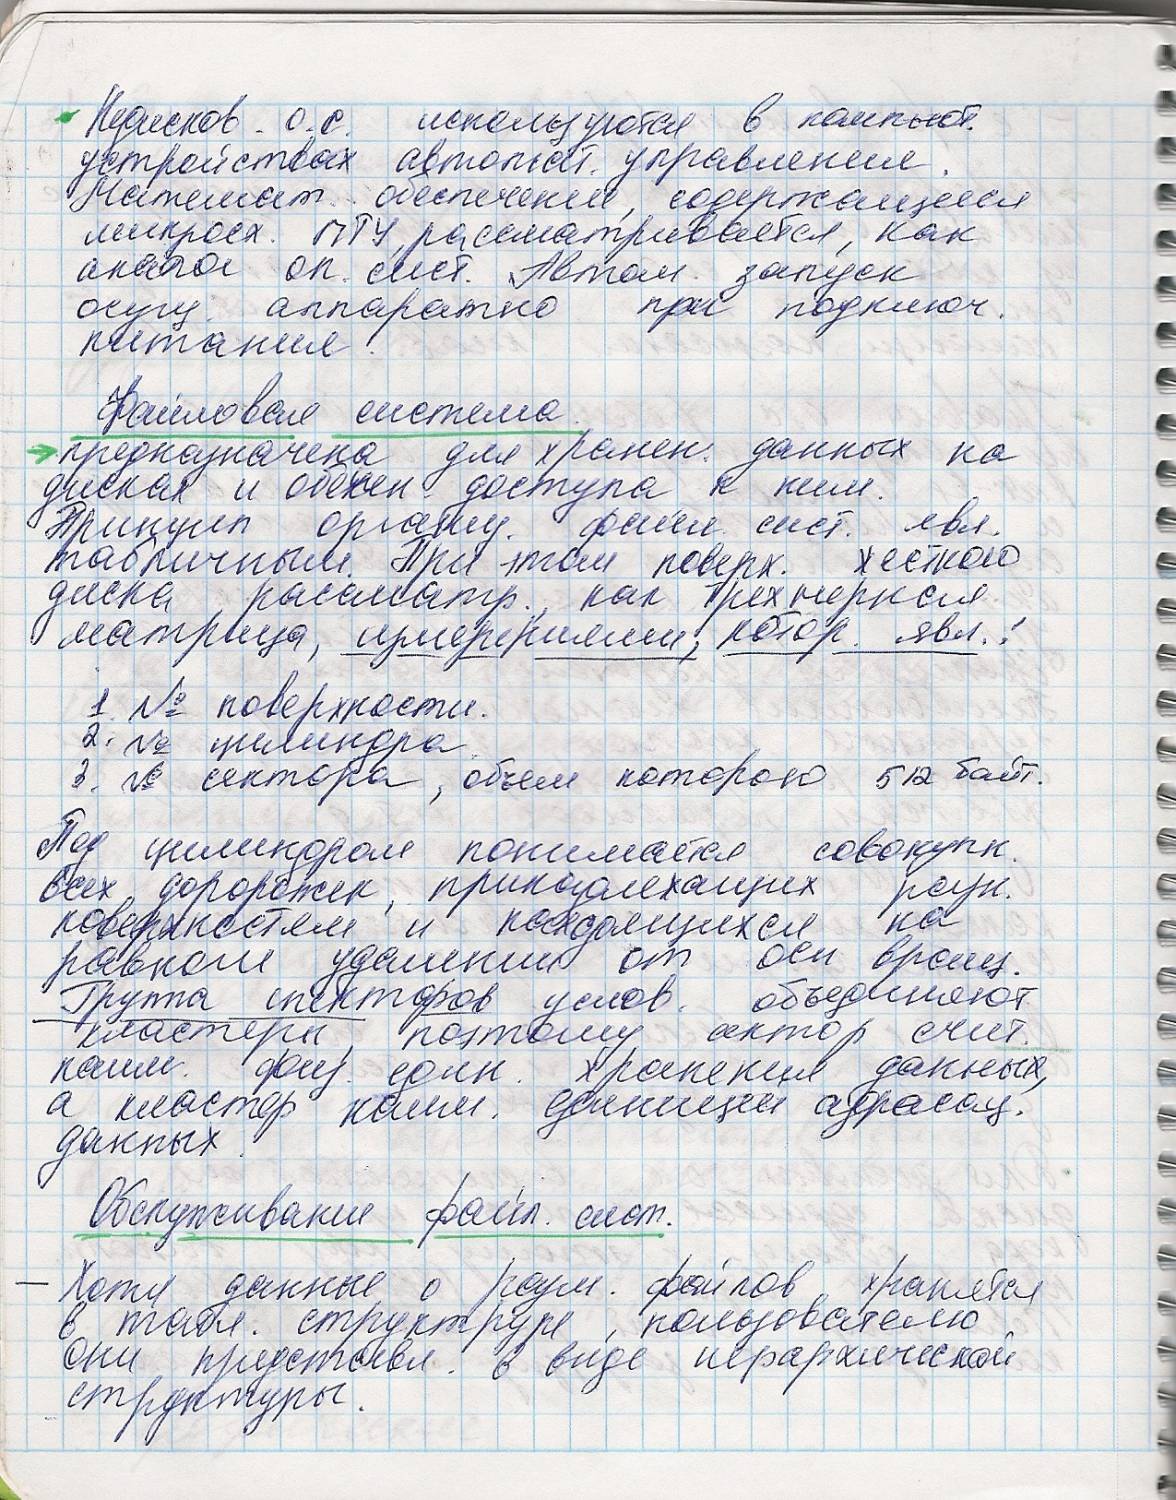 Недисков. о.с. используются в компьют.
устройствах автомат. управления.
Математ. обеспечение, содержащееся
микросх. ПТУ, рассматривается, как
аналог оп. сист. Автом. запуск
осущ. аппаратно при подключ.
питания.
Файловая система
предназначена для хранен. данных на
дисках и обеспеч. доступа к ним.
Принцип организ. файл. сист. явл.
табличным. При этом поверх. жесткого
диска рассматр., как трехмерная
матрица, измерениями, котор. явл.:
1. № поверхности.
2. № цилиндра.
3. № сектора, объем которого 512 байт.
Под цилиндром понимается совокупн.
всех доророжек, принадлежащих разн.
поверхностям и находящихся на
равном удалении от оси вращ.
Группа секторов услов. объединяют
кластеры, поэтому сектор счит.
наим. физ. един. хранения данных,
а кластер наим. единицей адресац.
данных.
Обслуживание файл. сист.
– Хотя данные о разм. файлов хранятся
в табл. структуре, пользователю
они представл. в виде иерархической
структуры.